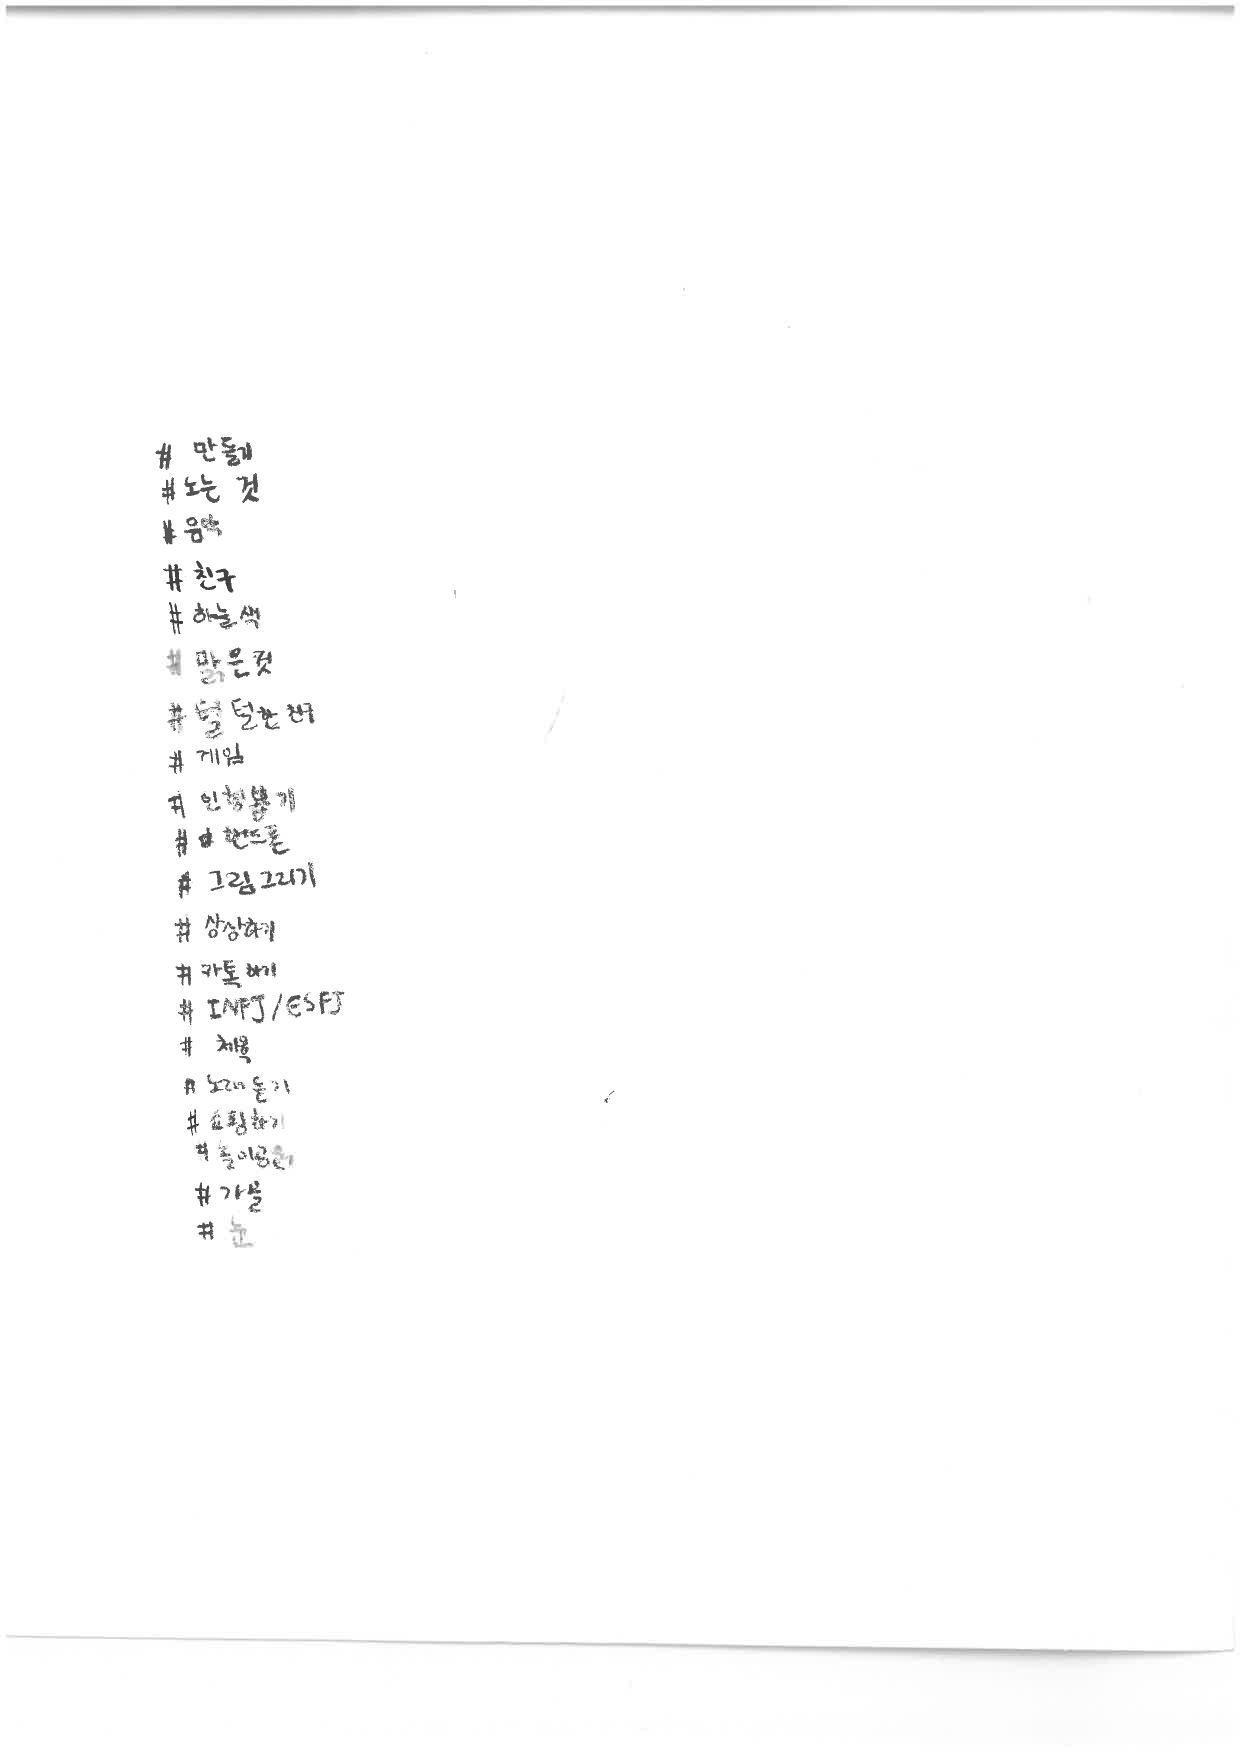 # 만들기
# 노는 것
# 음악
# 친구
# 하늘색
# 맑은것
# 털털한 친구
# 게임
# 인형뽑기
# # 핸드폰
# 그림그리기
# 상상하기
# 카톡하기
# INFJ/ESFJ
# 체육
# 노래듣기
# 쇼핑하기
# 놀이공원
# 가을
# 눈